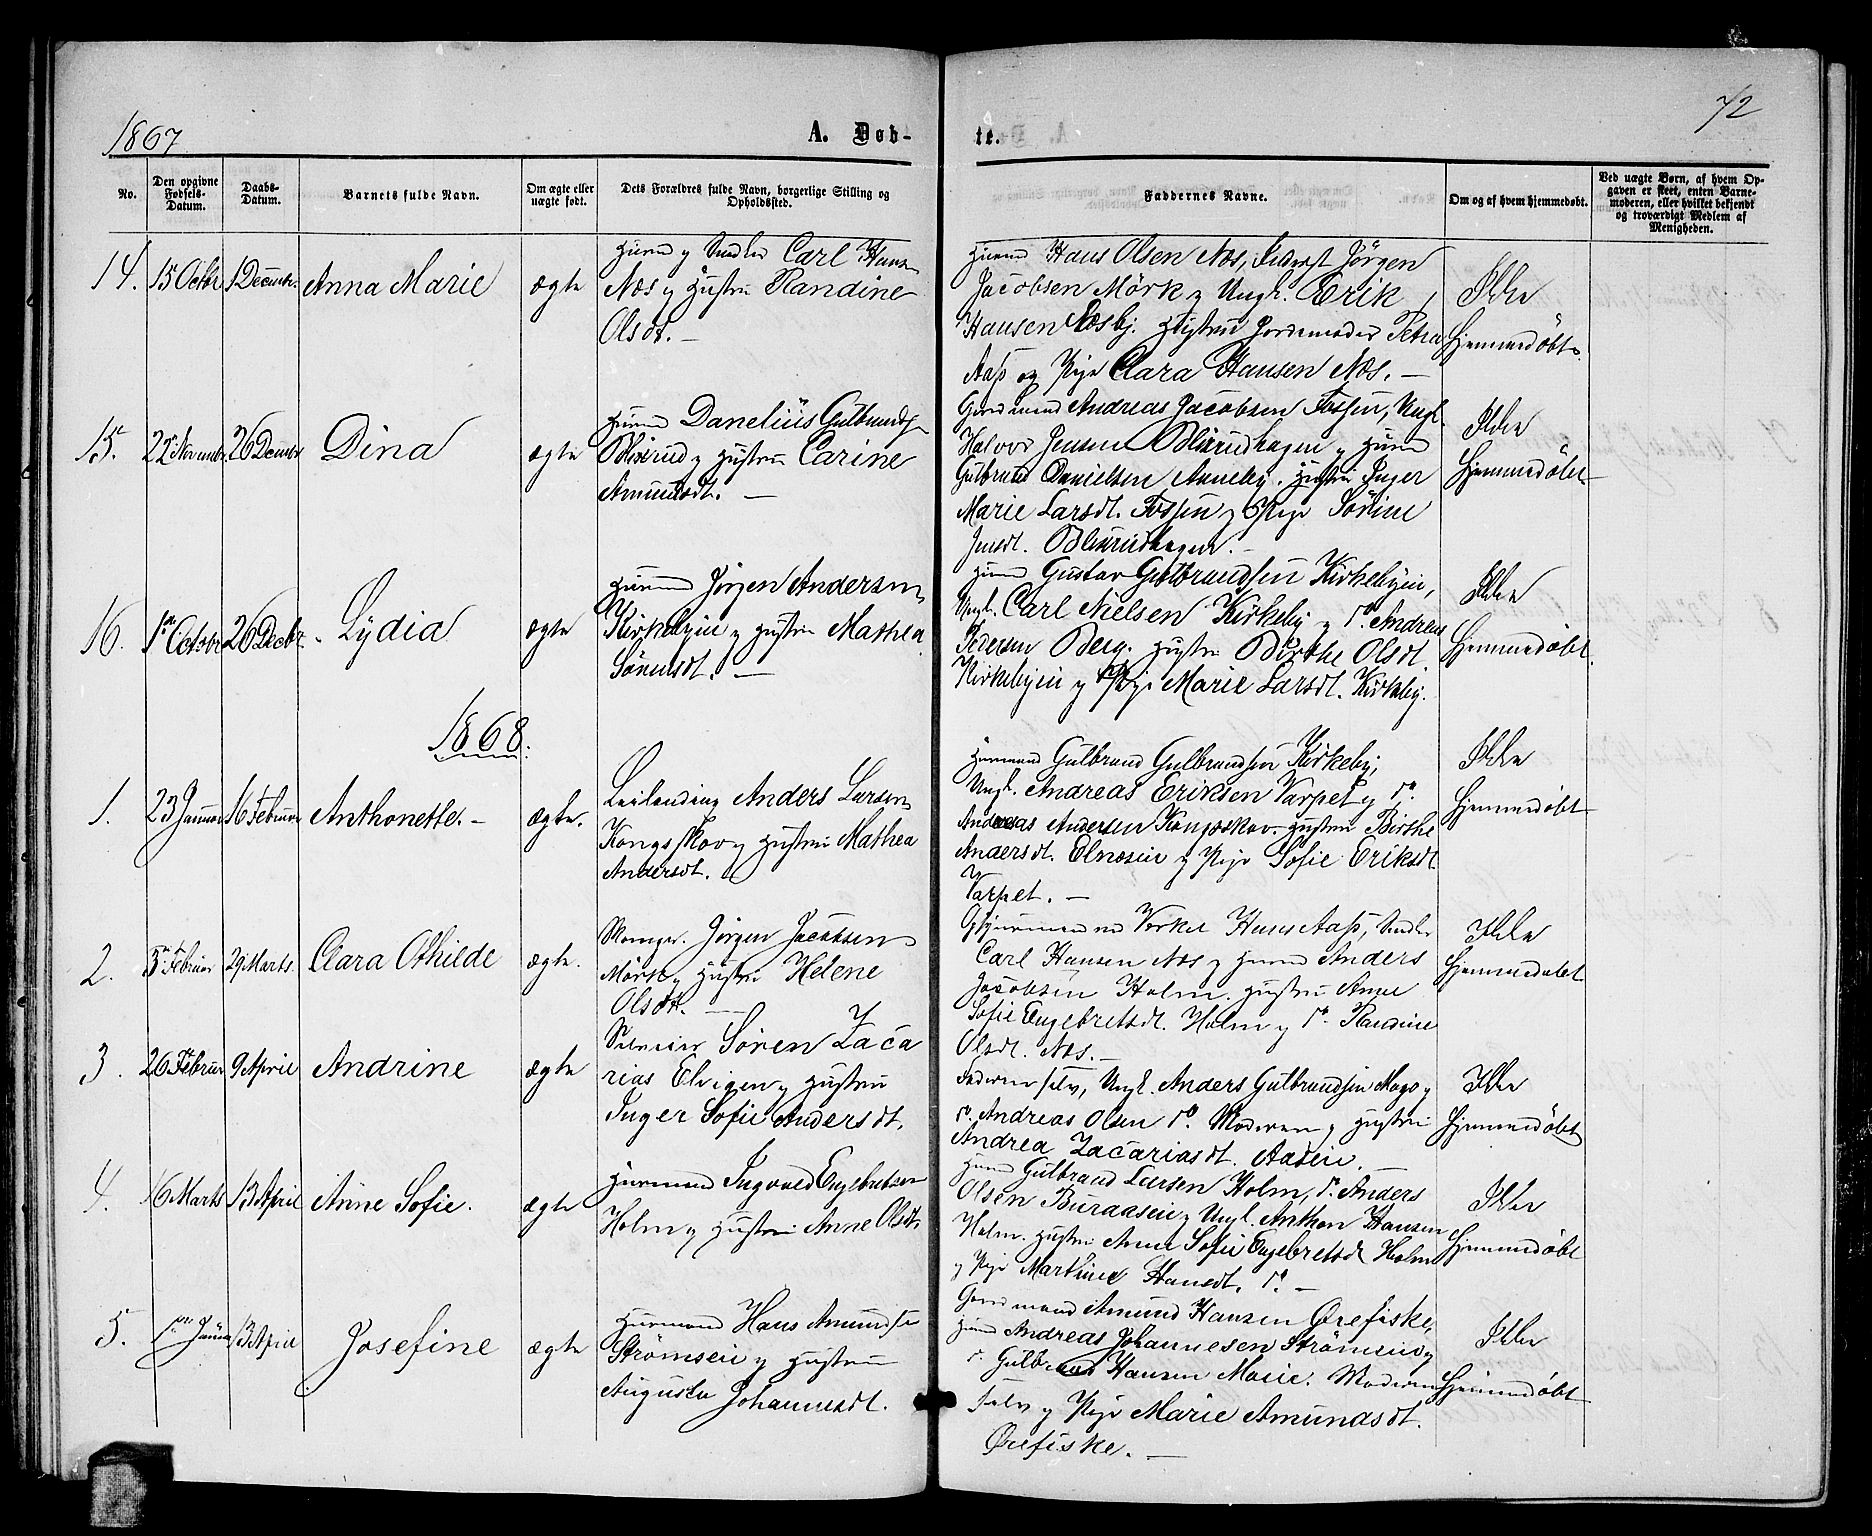 1867
A. Døb-
te.
72
No.
Den opgivne Fødsels-Datum.
Daabs-Datum.
Barnets fulde Navn.
Om ægte eller uægte født.
Dets Forældres fulde Navn, borgerlige Stilling og Opholdssted.
Faddernes Navne.
Om og af hvem hjemmedøbt.
Ved uægte Børn, af hvem Opgaven er skeet, enten Barnemoderen, eller hvilket bekjendt og troværdigt Medlem af Menigheden.
14. 15 Octbr 1 Decembr. Anna Marie ægte
Carl Hans
Næs og Hustru Randine
Olsdt. —
Hans Olsen Næs, Jørgen
Jacobsen Mörk og Ungk. Erik
Hansen Petra
Aas og Pige Clara Hansen Næs. —
Ikke
Hjemmedøbt.
15. 22 Novembr. 26 Decembr Dina ægte
Huusmd Danelius Gulbrands
og Hustru Carine
Amundsdt. —
Gaardmand Andreas Jacobsen Fossen, Ungk.
Halvor Jensen og Huusmd
Gulbrand Danielsen Hustru Inger
Marie Larsdt. Fossen og Pige Sörine
Jensdt.
Ikke
Hjemmedøbt
16. 1 Octobr 26 Decbr. Lydia ægte
Huusmd Jörgen Andersen
Kirkebyeie og Hustru Mathea
Sörensdt. —
Huusmd Gustav Gulbrandsen Kirkebyeie,
Ungk. Carl Nielsen Kirkeby og do. Andreas
Pedersen Berg. Hustru Birthe Olsdt.
Kirkebyeie og Pige Marie Larsdt. Kirkeby.
Ikke
Hjemmedøbt.
1868.
1. 23 Januar 16 Februar Anthonette. - ægte.
Leilending Anders Larsen
Kongsskov og Hustru Mathea
Andersdt.
Huusmand Gulbrand Gulbrandsen Kirkeby,
Ungk. Andreas Eriksen Varpet og do.
Andreas Andersen Kongsskov. Hustru Birthe
Andersdt. Elnæseie og Pige Sofie Eriksdt
Varpet. —
Ikke
Hjemmedøbt
2. 3 Februar 29 Marts. Clara Othilde ægte.
Jörgen Jacobsen
Mörk og Hustru Helene
Olsdt. —
Hans Aas,
Carl Hansen Næs og Huusmd Anders
Jacobsen Holm. Hustru Anne
Sofie Engebretsdt. Holm og do. Randine
Olsdt. Næs. —
Ikke
Hjemmedøbt
3. 26 Februar 9 April Andrine ægte
Selveier Sören Zaca
rias Elvigen og Hustru
Inger Sofie Andersdt.
Faderen selv, Ungk. Anders Gulbrandsen Mago og
do. Andreas Olsen do. Moderen og Hustru
Andrea Zacariasdt. Aaseie. —
Ikke
Hjemmedøbt
4. 16 Marts 13 April Anne Sofie. ægte
Huusmand Ingvald Engebretsen
Holm og Hustru Anne Olsdt.
Huusmd Gulbrand Larsen Holm, do. Anders
Olsen Buraaseie og Ungk. Anthon Hansen
Holm. Hustru Anne Sofie Engebretsdt Holm
og Pige Martine Hansdt. do. —
Ikke
Hjemmedøbt
5. 1 Januar 13 April Josefine ægte
Huusmand Hans Amunds
Strömseie og Hustru
Augusta Johannesdt.
Gaardmand Amund Hansen Örefiske,
Huusmd Andreas Johannesen Strömeie og
do. Gulbrand Hansen Moeie. Moderen
selv og Pige Marie Amundsdt.
Örefiske. —
Ikke
Hjemmedøbt